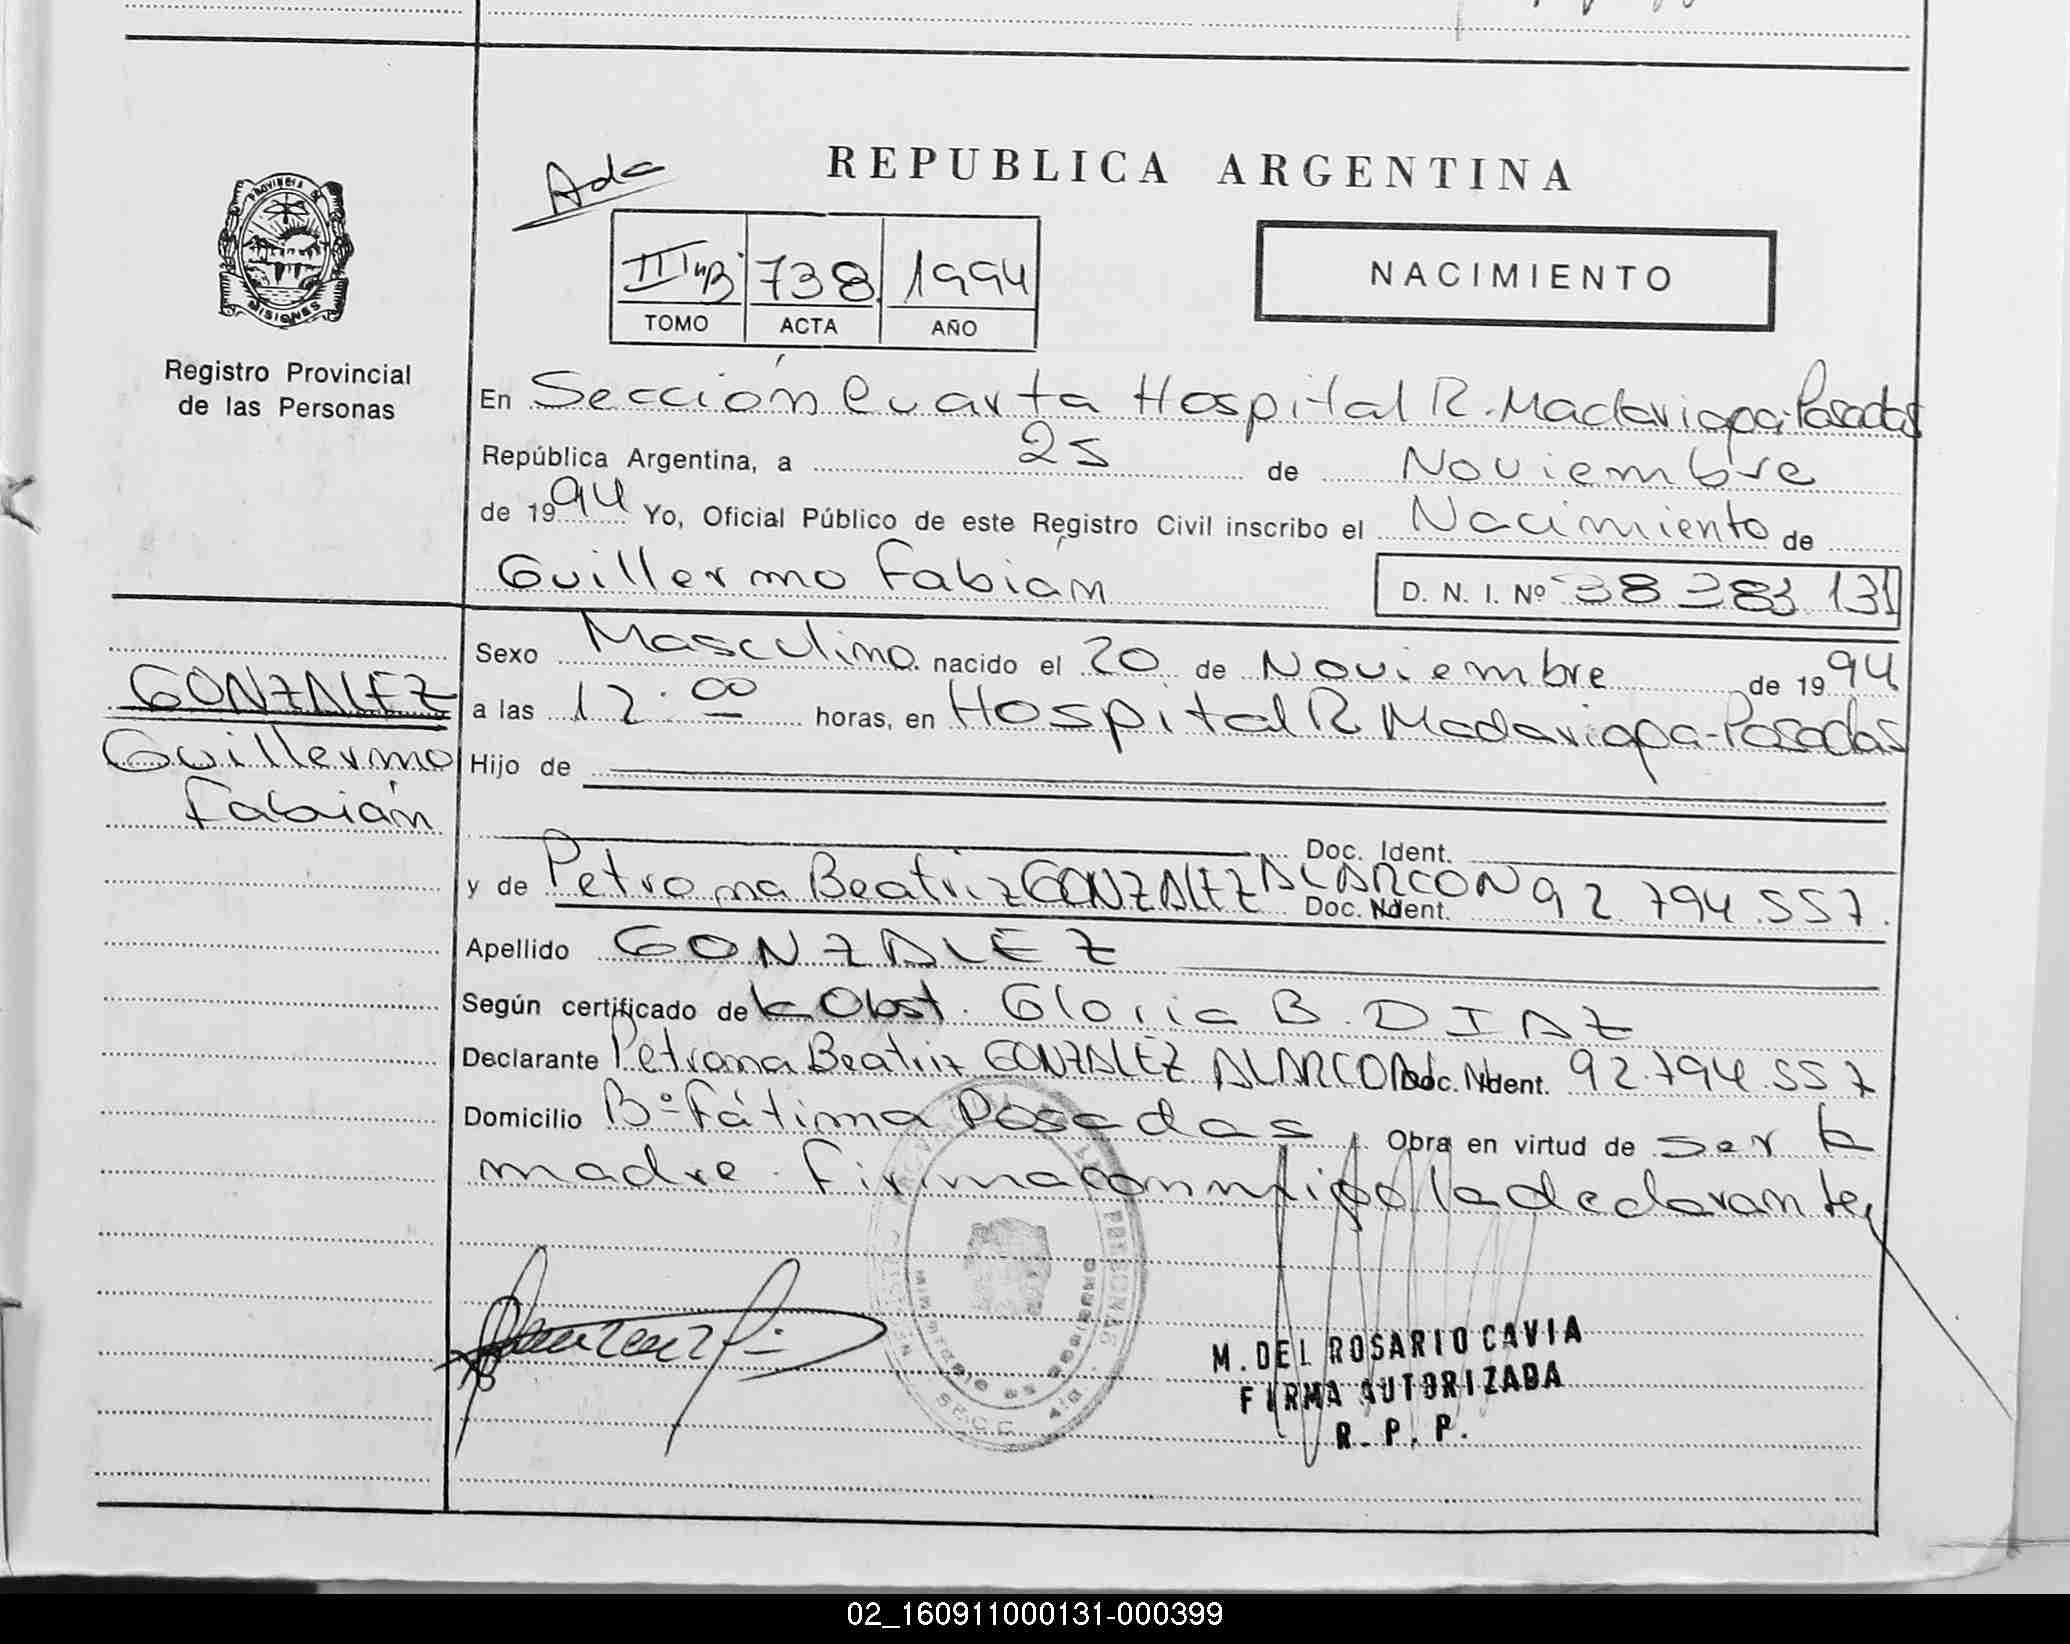 REPUBLICA ARGENTINA
Ada
III "B" 738 1994
TOMO ACTA AÑO
NACIMIENTO
PROVINCIA DE MISIONES
Registro Provincial
de las Personas
En Sección Cuarta Hospital R. Madariaga-Posadas
República Argentina, a 25 de Noviembre
de 1994 Yo, Oficial Público de este Registro Civil inscribo el Nacimiento de
Guillermo Fabián D. N. I. Nº 38 283 131
GONZALEZ
Guillermo
Fabián
Sexo Masculino nacido el 20 de Noviembre de 1994
a las 12:00 horas, en Hospital R Madariaga-Posadas
Hijo de
Doc. Ident.
y de Petrona Beatriz GONZALEZ ALARCON Doc. Ident. 92.794.557.
Apellido GONZALEZ
Según certificado de la Obst. Gloria B. DIAZ
Declarante Petrona Beatriz GONZALEZ ALARCON Doc. Ident. 92.794.557
Domicilio Bº Fátima Posadas Obra en virtud de ser la
madre. Firma conmigo la declarante,
M. DEL ROSARIO CAVIA
FIRMA AUTORIZADA
R. P. P.
02_160911000131-000399